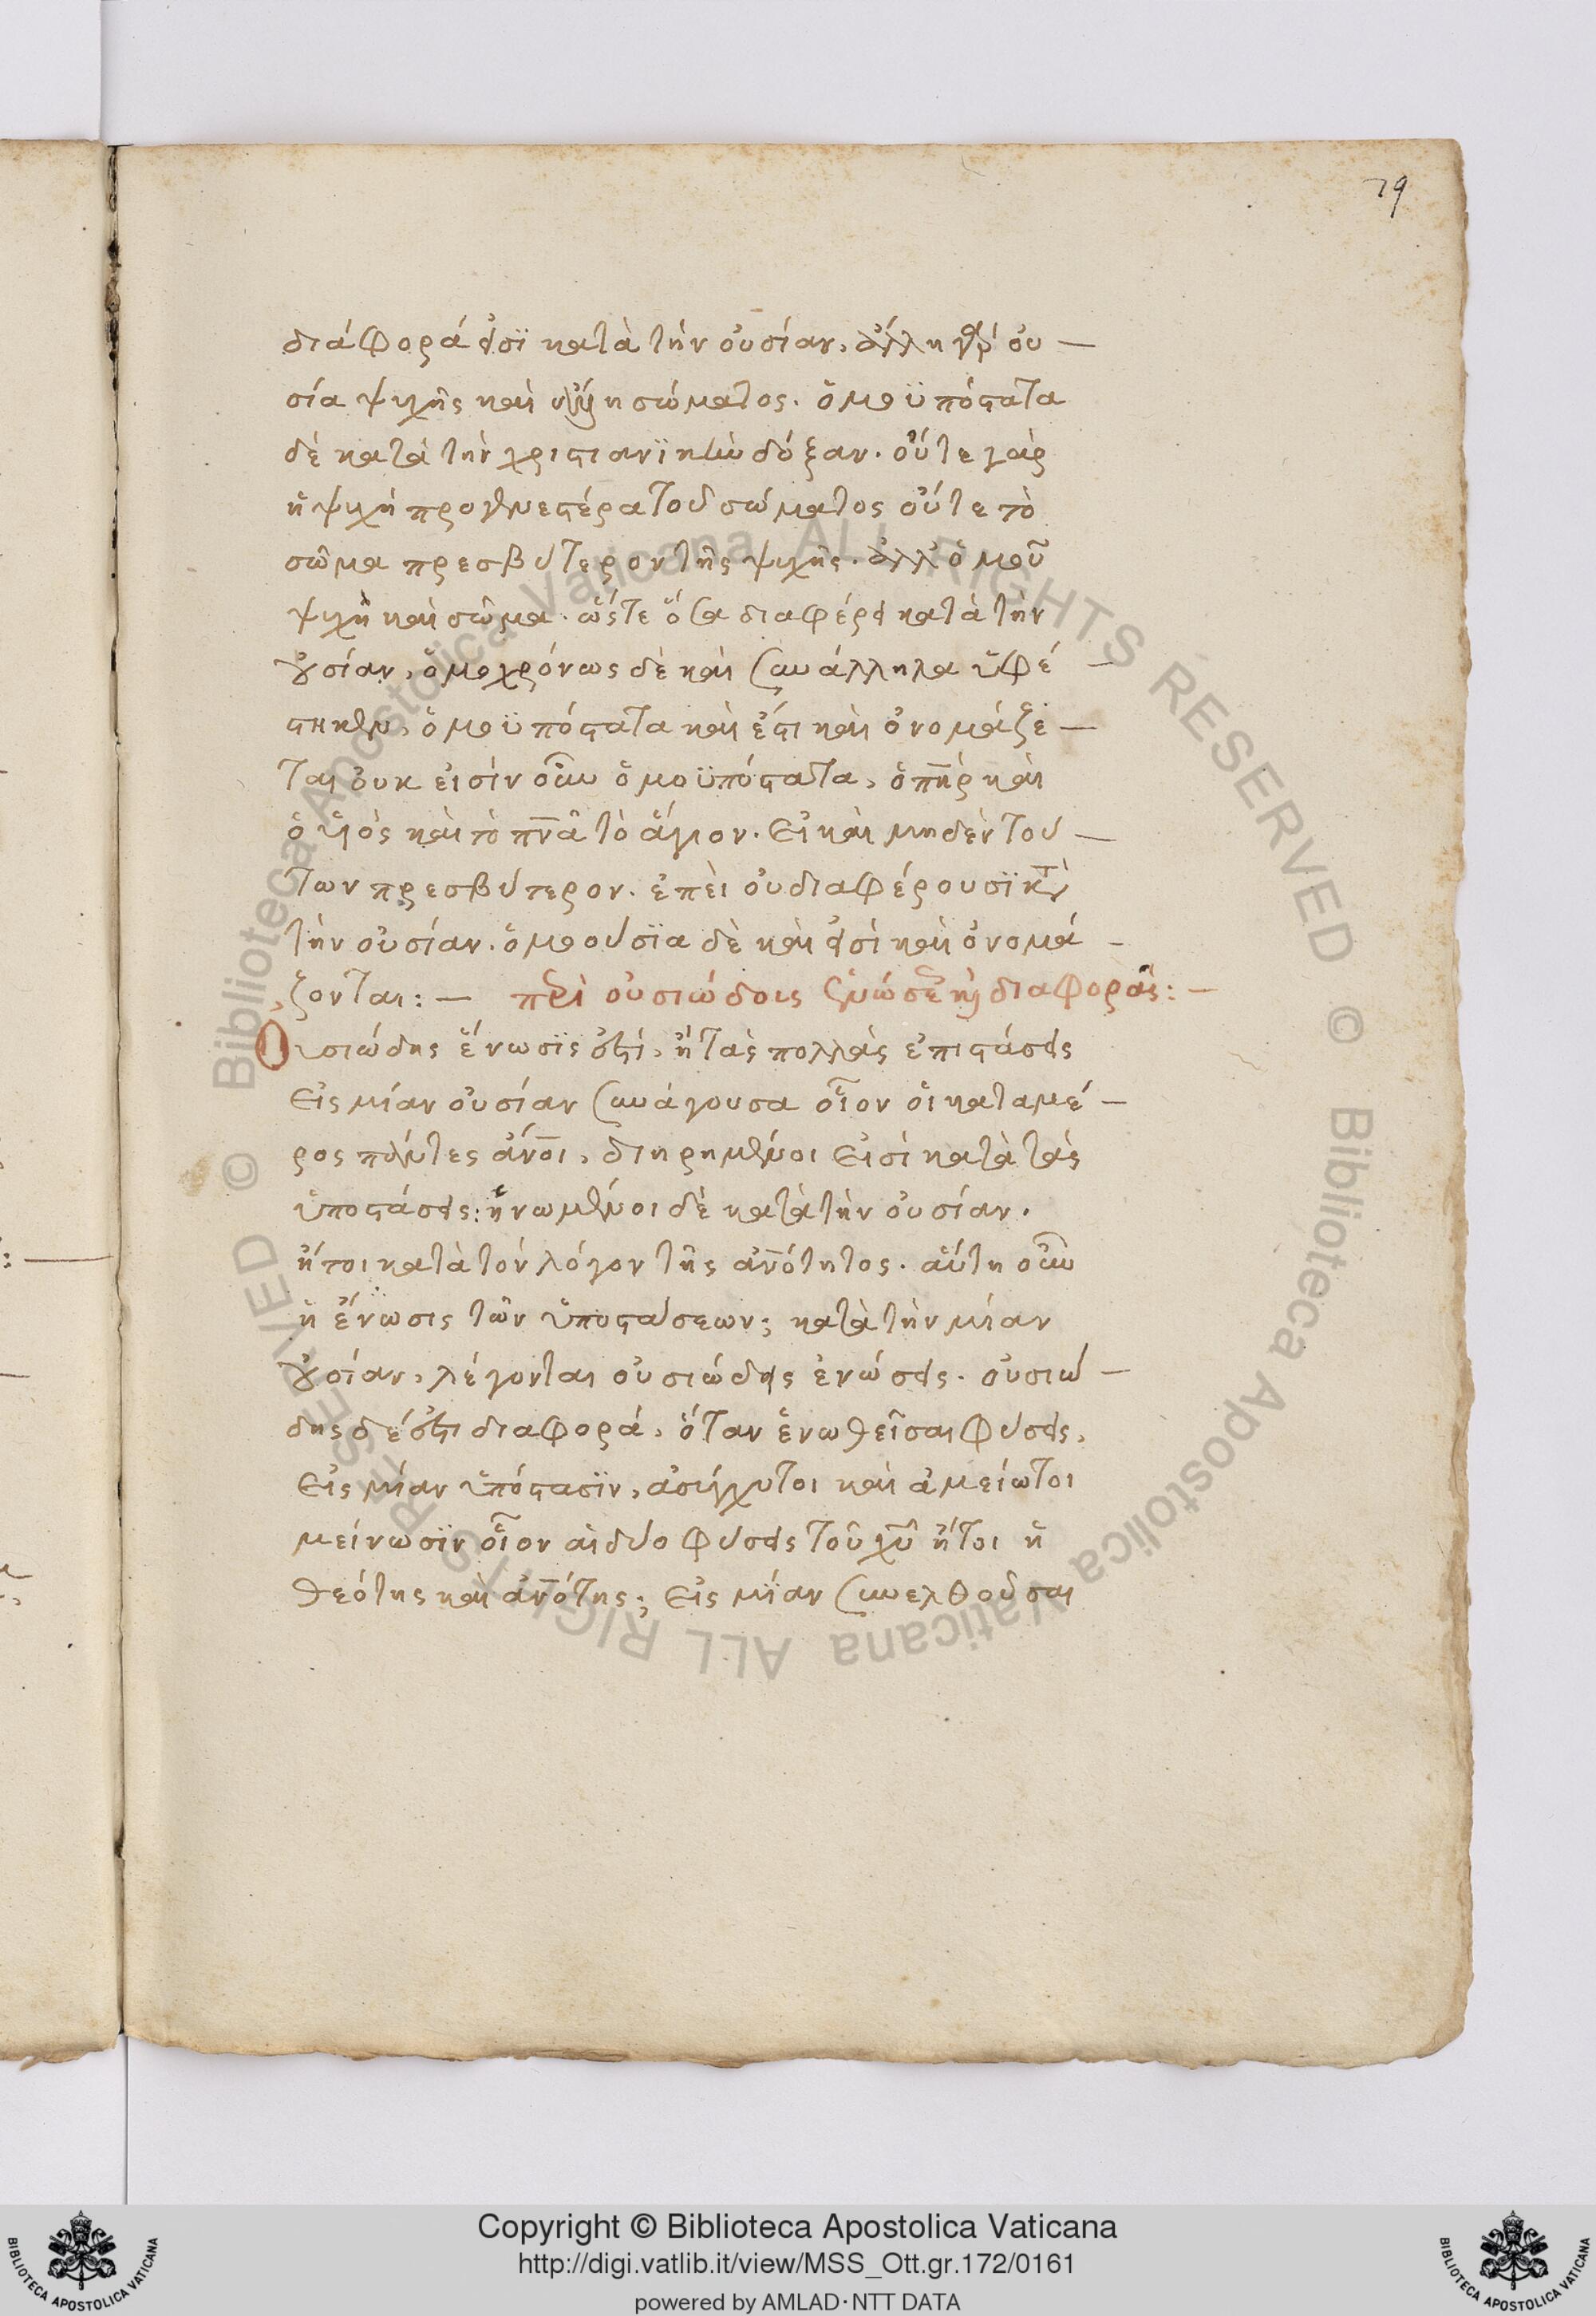 79
διάφορά εἰσϊ κατὰ τὴν οὐσίαν, ἄλλη γὰρ οὐ —
σία ψυχῆς καὶ ἄλλη σώματος. ὁμοϋπόστατα
δὲ κατὰ τὴν χριστιανϊκὴν δόξαν. οὔτε γὰρ
ἡ ψυχὴ προγενεστέρα τοῦ σώματος οὔτε τὸ
σῶμα πρεσβύτερον τῆς ψυχῆς. ἀλλ' ὁμοῦ
ψυχὴ καὶ σῶμα. ὥστε ὅσα διαφέρει κατὰ τὴν
οὐσίαν, ὁμοχρόνως δὲ καὶ συνάλληλα ὑφέ —
στηκεν, ὁμοϋπόστατα καὶ ἔστι καὶ ὀνομάζε —
ται οὐκ εἰσὶν οὖν ὁμοϋπόστατα, ὁ πηρ καὶ
ὁ υἱὸς καὶ τὸ πνα τὸ ἅγιον. Εἰ καὶ μηδὲν τού —
των πρεσβύτερον. ἐπεὶ οὐ διαφέρουσϊ κατὰ
τὴν οὐσίαν. ὁμοούσϊα δὲ καὶ εἰσὶ καὶ ὀνομά —
ζονται: — περὶ οὐσιώδους ἑνώσεως καὶ διαφορᾶς: —
Οὐσιώδης ἕνωσϊς ἐστί, ἡ τὰς πολλὰς ἐπιστάσεις
Εἰς μίαν οὐσίαν συνάγουσα οἷον οἱ καταμέ —
ρος πάντες ἄνοι, διηρημένοι Εἰσὶ κατὰ τὰς
ὑποστάσεις: ἡνωμένοι δὲ κατὰ τὴν οὐσίαν.
ἤτοι κατὰ τὸν λόγον τῆς ἀνότητος. αὕτη οὖν
ἡ ἕνωσις τῶν ὑποστάσεων; κατὰ τὴν μίαν
οὐσίαν, λέγονται οὐσιώδεις ἑνώσεις. οὐσιώ —
δης δέ ἐστι διαφορά, ὅταν ἑνωθεῖσαι φύσεις,
Εἰς μίαν ὑπόστασϊν, ἀσύγχυτοι καὶ ἀμείωτοι
μείνωσϊν οἷον αἱ δύο φύσεις τοῦ χυ ἤτοι ἡ
θεότης καὶ ἀνότης; Εἰς μίαν συνελθοῦσαι
Copyright © Biblioteca Apostolica Vaticana
http://digi.vatlib.it/view/MSS_Ott.gr.172/0161
powered by AMLAD·NTT DATA
BIBLIOTECA APOSTOLICA VATICANA
BIBLIOTECA APOSTOLICA VATICANA
© Biblioteca Apostolica Vaticana ALL RIGHTS RESERVED © Biblioteca Apostolica Vaticana ALL RIGHTS RESERVED